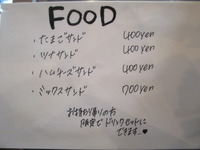 FOOD
・たまごサンド 400yen
・ツナサンド 400yen
・ハムチーズサンド 400yen
・ミックスサンド 700yen
お持ち帰りの方
限定でドリンクセットに
できます。♥